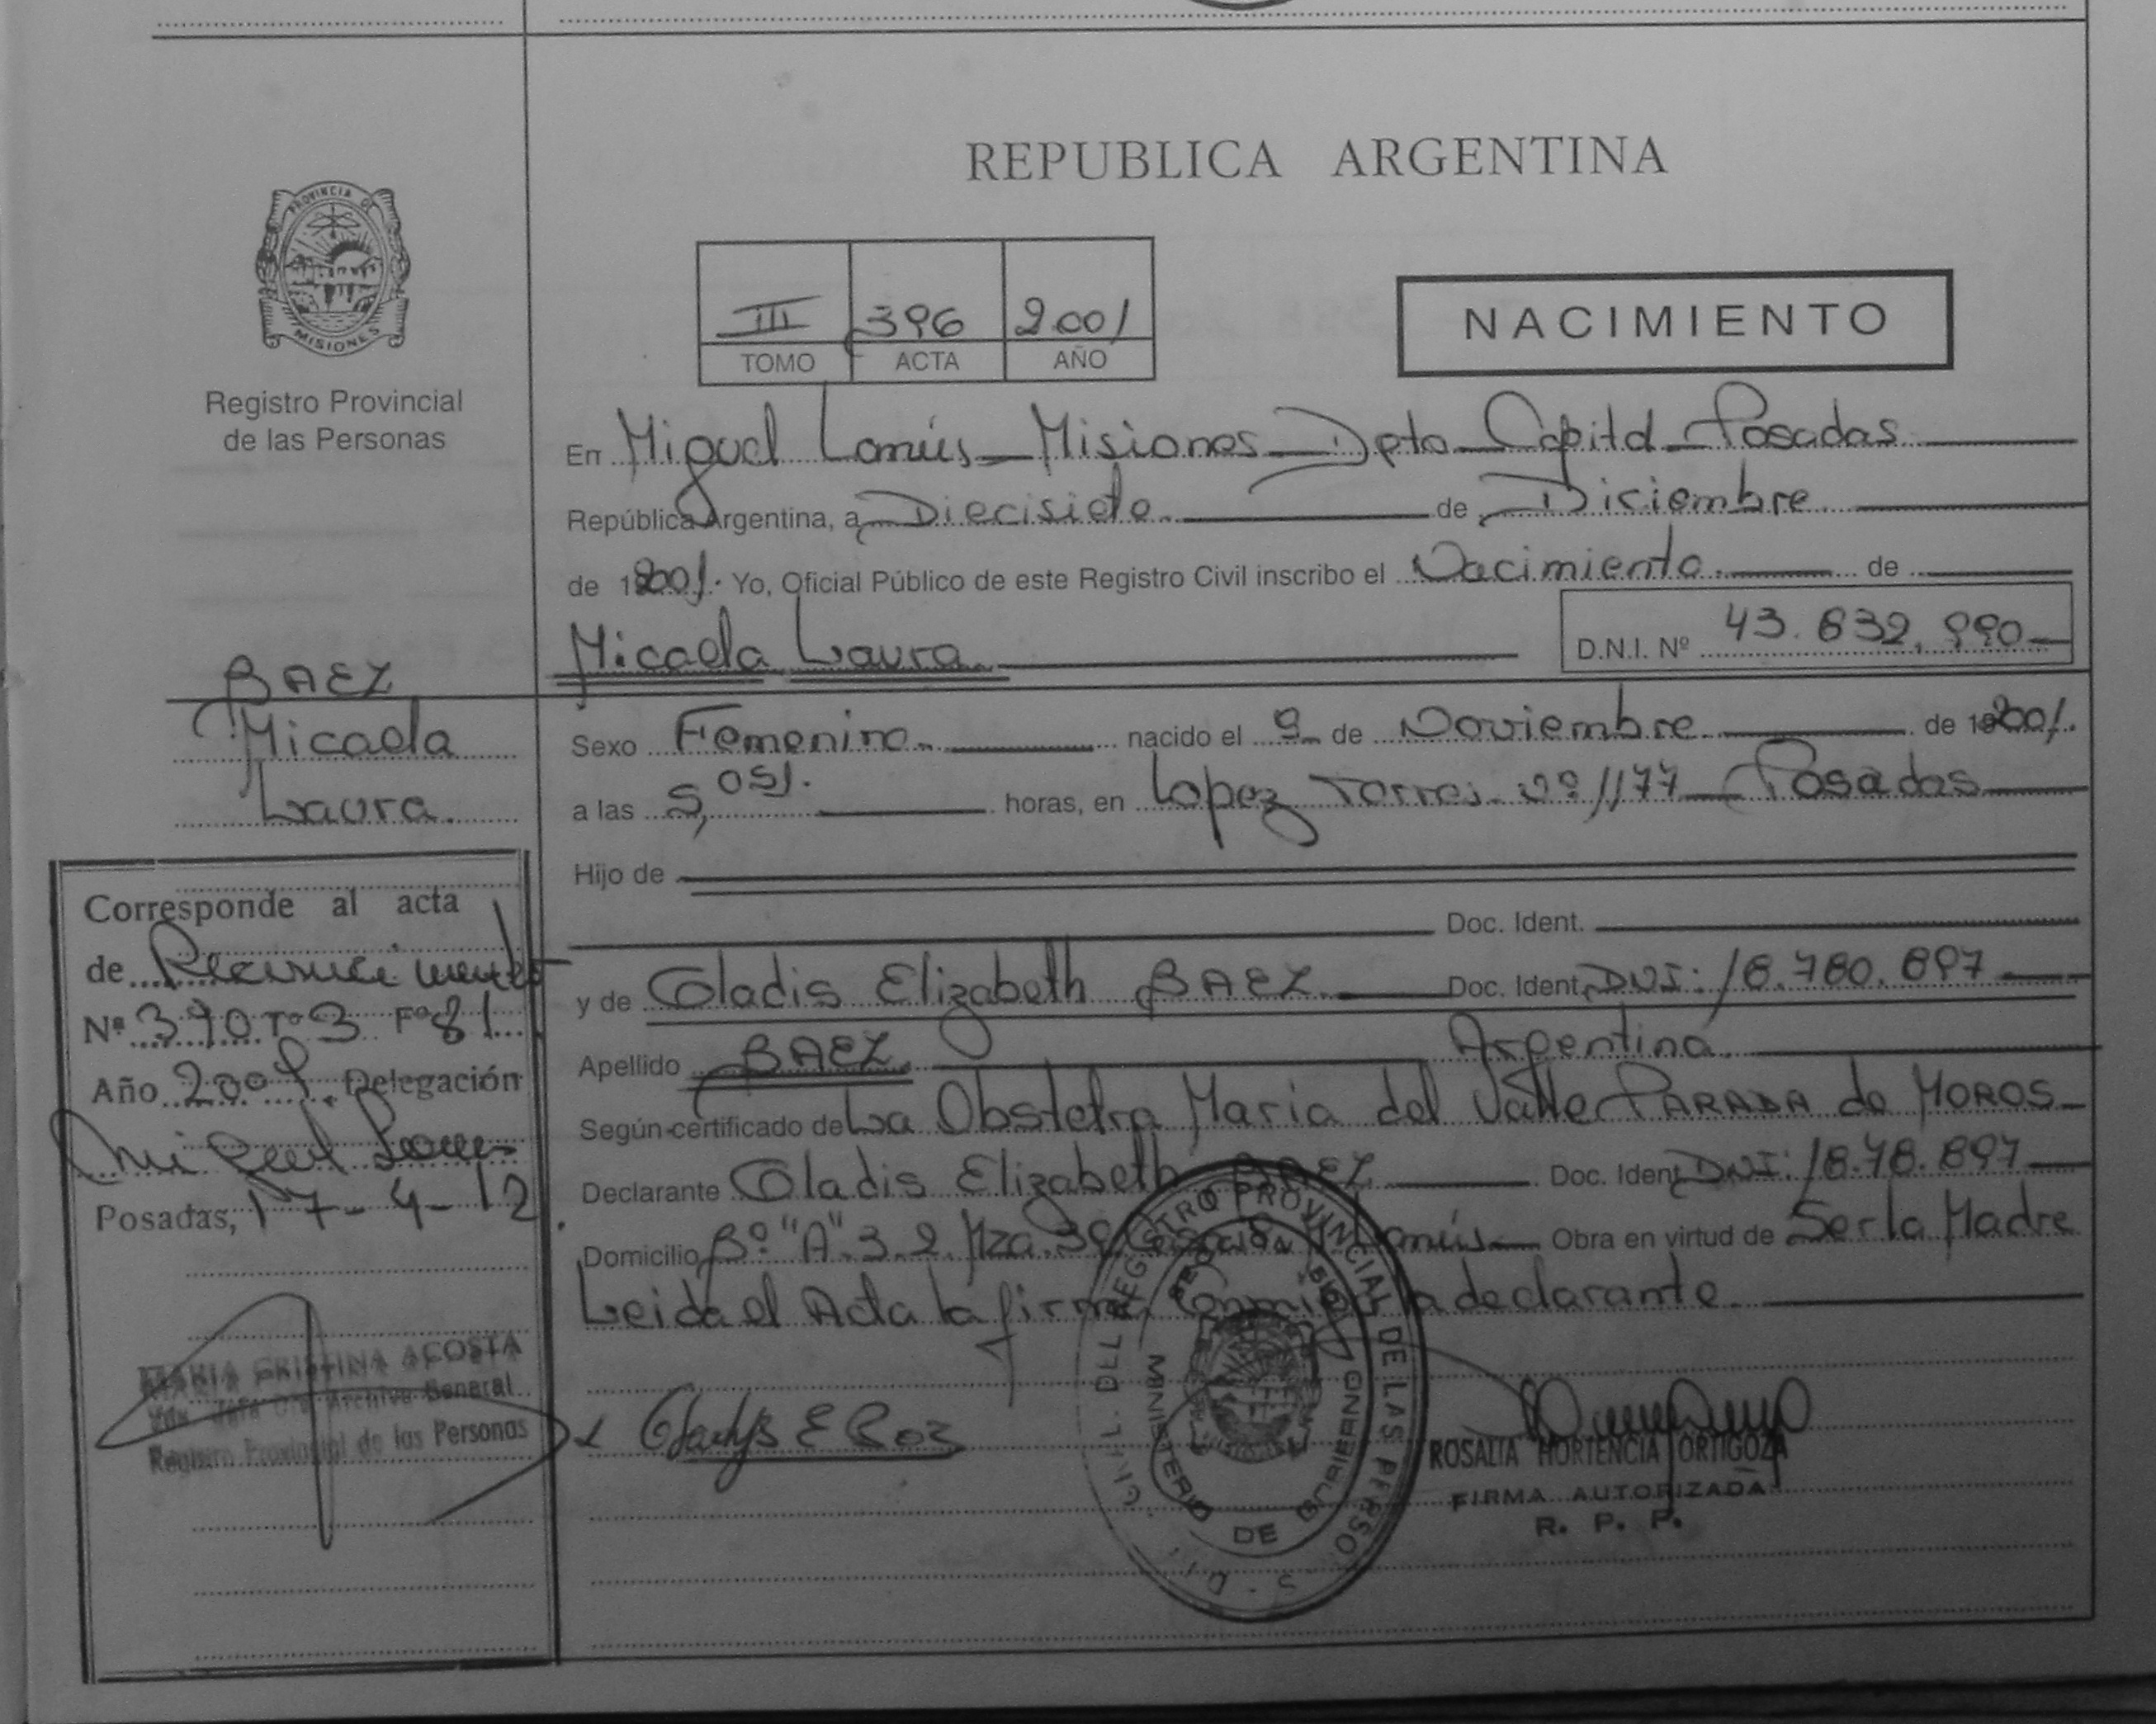 REPUBLICA ARGENTINA
PROVINCIA DE MISIONES
Registro Provincial
de las Personas
III 396 2001
TOMO ACTA AÑO
NACIMIENTO
En Miguel Lanús Misiones Dpto Capital Posadas
República Argentina, a Diecisiete de Diciembre
de 2001. Yo, Oficial Público de este Registro Civil inscribo el Nacimiento de
Micaela Laura
D.N.I. Nº 43.832.990
BAEZ
Micaela
Laura.
Sexo Femenino nacido el 9 de Noviembre de 2001.
a las 5, 05 horas, en Lopez Torres nº 1177 Posadas
Hijo de
Doc. Ident.
y de Gladis Elizabeth BAEZ Doc. Ident. DNI: 18.780.897
Apellido BAEZ Argentina
Según certificado de La Obstetra Maria del Valle PARADA de MOROS
Declarante Gladis Elizabeth BAEZ Doc. Ident. DNI: 18.78.897
Domicilio Bº "A" 3.2 Mza Lanús Obra en virtud de Ser la Madre
Leida el Acta la firma la declarante
Corresponde al acta
de Reconocimiento
Nº 390 Tº 3 Fº 81
Año 2009 Delegación
Miguel Lanus
Posadas, 17-4-12
MARIA CRISTINA ACOSTA
Archivo General
Registro Provincial de las Personas
Gladys E Baez
REGISTRO PROVINCIAL DE LAS PERSONAS
MINISTERIO DE GOBIERNO
ROSALIA HORTENCIA ORTIGOZA
FIRMA AUTORIZADA
R. P. P.